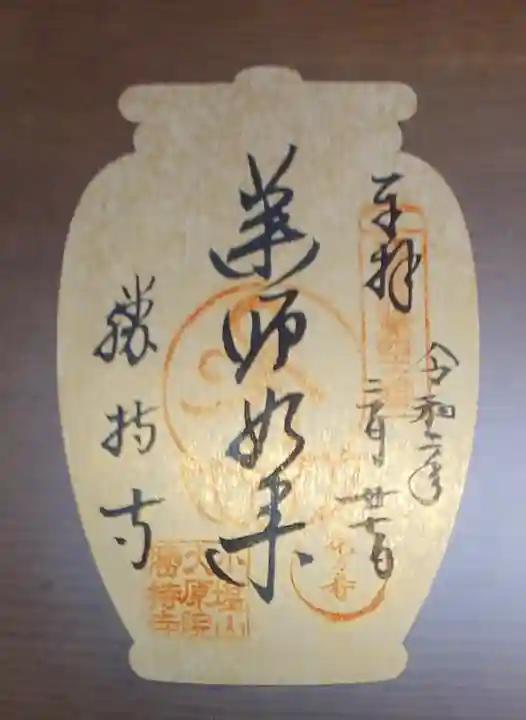 奉拝
令和二年
二月廿七日
薬師如来
勝持寺
小塩山
大原院
勝持寺